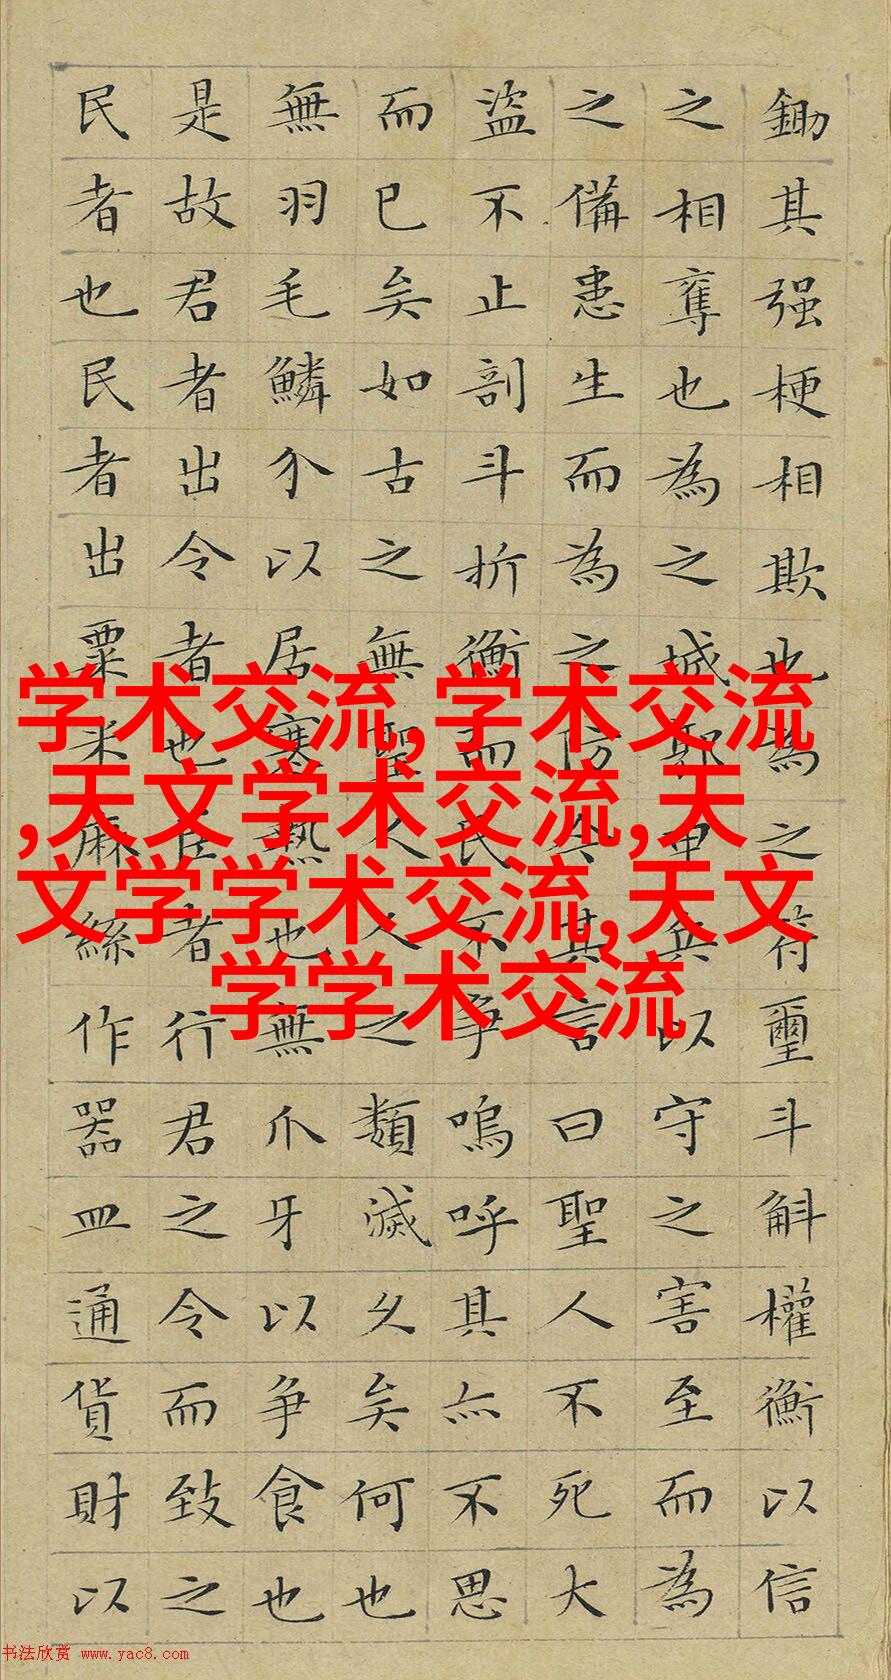 鋤其强梗相欺也為之符璽斗斛權衡以信
之相奪也為之城郭甲兵以守之害至而為
之備患生而為之防今其言曰聖人不死大
盜不止剖斗折衡而民不爭嗚呼其亦不思
而已矣如古之無聖人人之類滅久矣何也
無羽毛鱗介以居寒熱也無爪牙以爭食也
是故君者出令者也臣者行君之令而致之
民者也民者出粟米麻絲作器皿通貨財以
学术交流,学术交流
,天文学术交流,天
文学学术交流,天文
学学术交流
书法欣赏 www.yac8.com